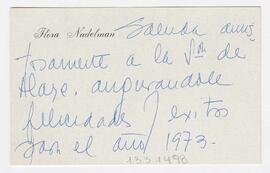 Flora Nudelman Saluda amis
tosamente a la Sra de
Alaze, augurandole
felicidades y exitos
para el año 1973-
1331498